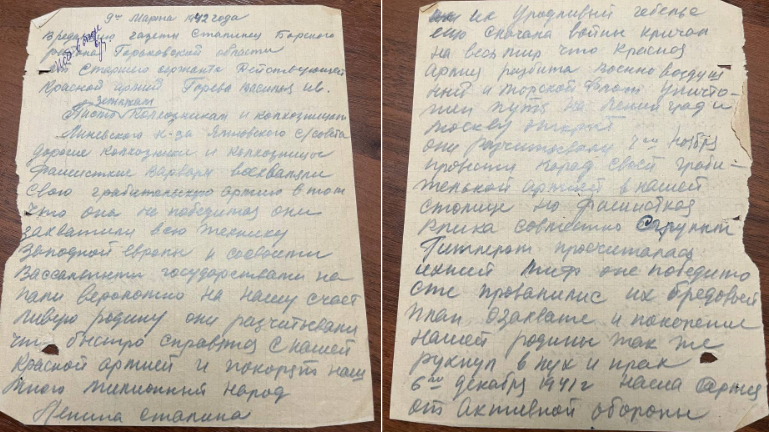 9го Марта 1942 года
В редакцию газеты Сталинец Борского
района Горьковской области
от Старшего сержанта Действующей
Красной армии Ив.
землякам
Колхозникам и колхозницам
к-за с/совета
дорогие колхозники и колхозницы
фашистские варвары восхваляли
свою грабительскую армию в том
что она не победимая они
захватили всю технику
Западной Европы и совместно
Вассальными государствами на
пали вероломно на нашу счаст
ливую родину они разчитывали
что быстро справятся с нашей
Красной армией и покорят наш
много милионный народ
Ленина Сталина
их Уродливый
еще сначала войны кричал
на весь мир что Красная
армия разбита Военно воздуш
ный и морской флот уничто-
жен путь на Ленинград и
Москву открыт
они разчитывали 7го ноября
провести парад своей граби-
тельской армией в нашей
столице но фашисткая
клика совместно
Гитлером просчиталась
ихний миф о не победимо
сте провалился их бредовый
план о захвате и покорение
нашей родины так же
рухнул в пух и прах
6го декабря 1941 г наша армия
от Активной обороны